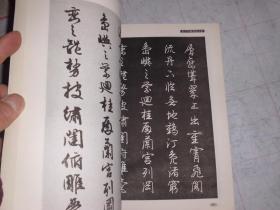 層巒聳翠上出重霄飛閣
流丹下臨無地鶴汀鳧渚窮
島嶼之縈迴桂殿蘭宮列岡
島嶼之縈迴桂殿蘭宮列岡
巒之體勢披繡闥俯雕甍